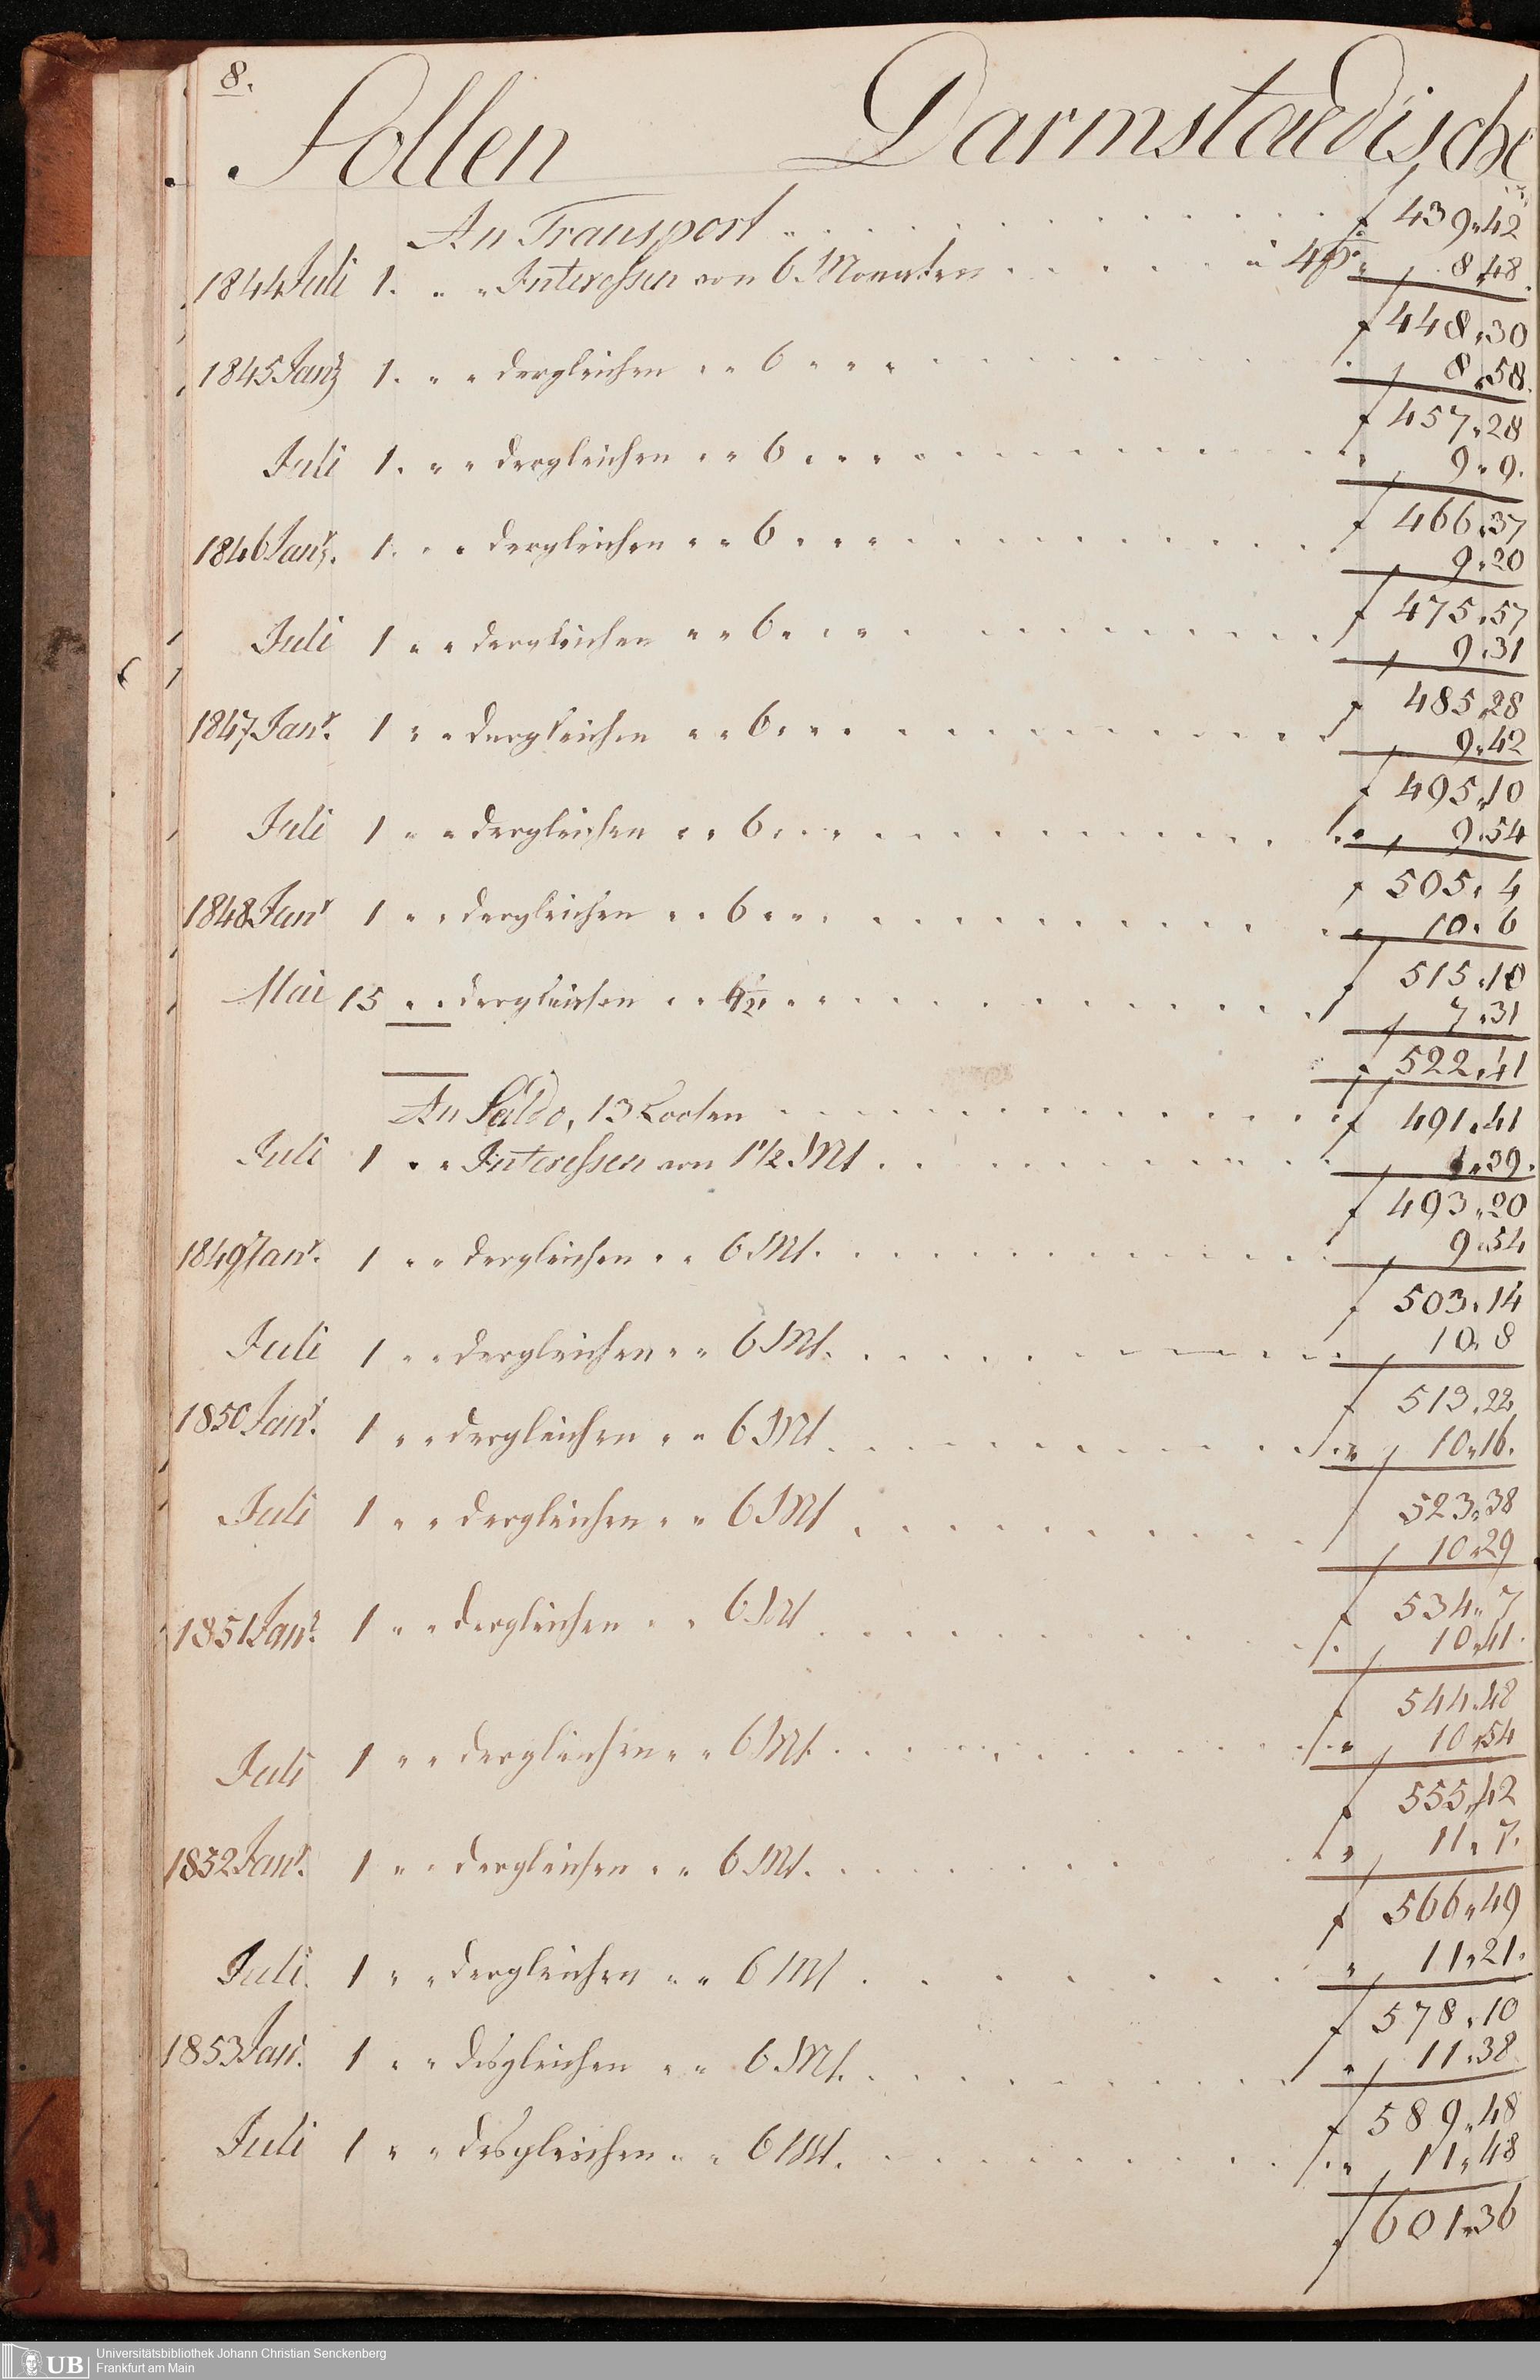 8.
Sollen Darmstaedische
An Transport . . . . . f 439 " 42
1844 Juli 1. " " Interessen von 6. Monaten . . . . . a 4 p.° " 8 " 48.
f 448 " 30
1845 Janr 1. " " dergleichen " " 6 " " " . . . . . 8 " 58.
f 457 " 28
Juli 1. " " dergleichen " " 6 " " " . . . . . 9 " 9.
f 466 " 37
1846 Janr. 1. " " dergleichen " " 6 " " " . . . . . 9 " 20
f 475 " 57
Juli 1 " " dergleichen " " 6 " " " . . . . . 9 " 31
f 485 " 28
1847 Janr. 1 " " dergleichen " " 6 " " " . . . . . 9 " 42
f 495 " 10
Juli 1 " " dergleichen " " 6 " " " . . . . . " 9 " 54
f 505 " 4
1848 Janr 1 " " dergleichen " " 6 " " " . . . . . " 10 " 6
f 515 " 10
Mai 15 " " dergleichen " " 4½ " " . . . . . 7 " 31
f 522 " 41
An Saldo, 13 Looten . . . . . f 491 " 41
Juli 1 " " Interessen von 1½ Mt . . . . . 1 " 39.
f 493 " 20
1849 Janr. 1 " " dergleichen " " 6 Mt. . . . . . 9 " 54
f 503 " 14
Juli 1 " " dergleichen " " 6 Mt. . . . . . 10 " 8
f 513 " 22
1850 Janr. 1 " " dergleichen " " 6 Mt . . . . . " 10 " 16.
523 " 38
Juli 1 " " dergleichen " " 6 Mt . . . . . 10 " 29
f 534 " 7
1851 Janr. 1 " " dergleichen " " 6 Mt . . . . . 10 " 41.
f 544 " 48
Juli 1 " " dergleichen " " 6 Mt. . . . . . " 10 " 54
f 555 " 42
1852 Janr. 1 " " dergleichen " " 6 Mt. . . . . . " 11 " 7.
f 566 " 49
Juli. 1 " " dergleichen " " 6 Mt . . . . . " 11 " 21.
f 578 " 10
1853 Janr. 1 " " desgleichen " " 6 Mt. . . . . . " 11 " 38
f 589 " 48
Juli 1 " " desgleichen " " 6 Mt. . . . . . " 11 " 48
f 601 " 36
UB
Universitätsbibliothek Johann Christian Senckenberg
Frankfurt am Main